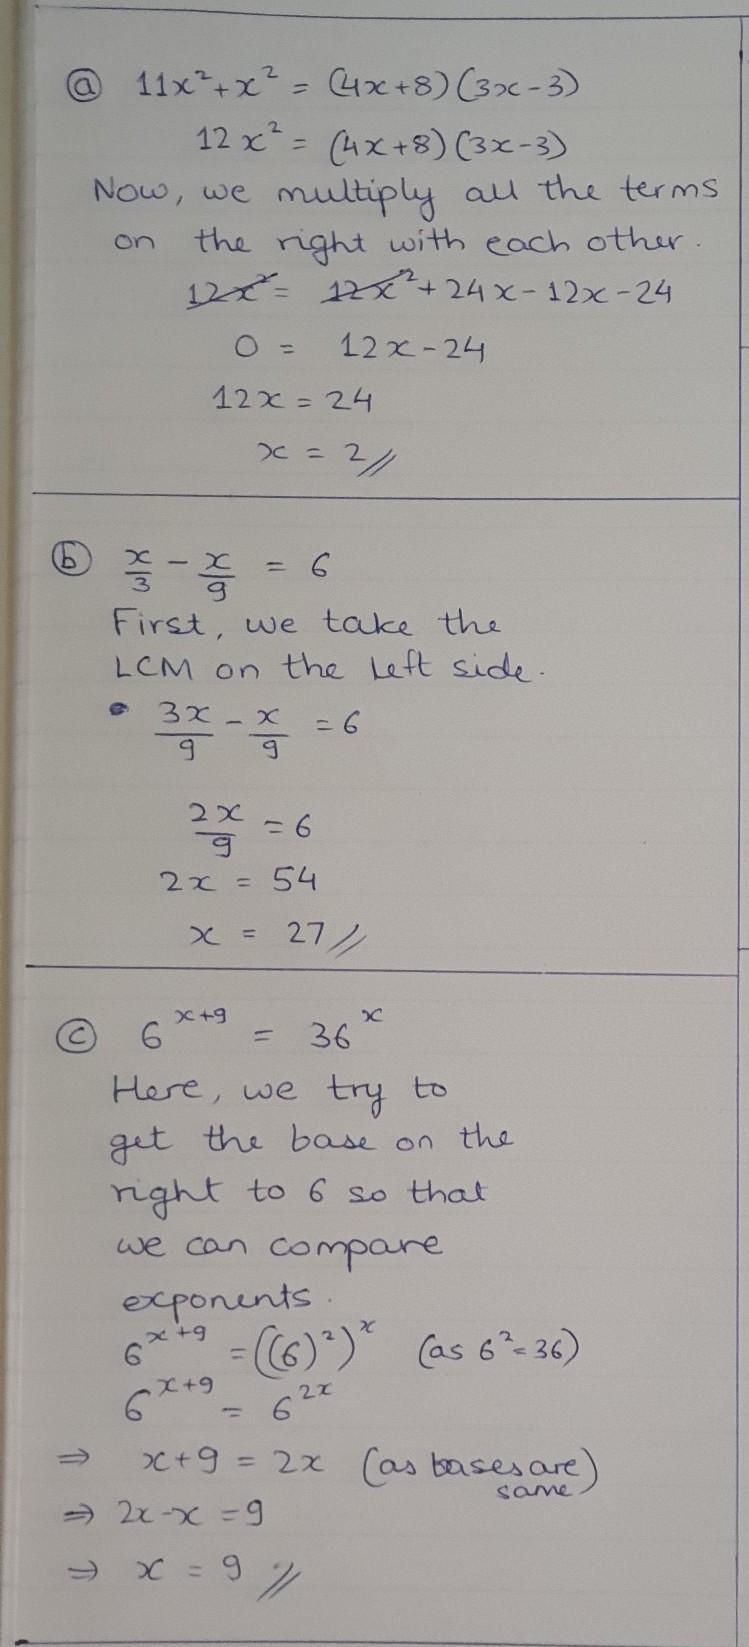 ⓐ 11x² + x² = (4x+8)(3x-3)
12x² = (4x+8)(3x-3)
Now, we multiply all the terms
on the right with each other.
12x² = 12x² + 24x - 12x - 24
0 = 12x - 24
12x = 24
x = 2 //
ⓑ x/3 - x/9 = 6
First, we take the
LCM on the left side.
3x/9 - x/9 = 6
2x/9 = 6
2x = 54
x = 27 //
ⓒ 6^(x+9) = 36^x
Here, we try to
get the base on the
right to 6 so that
we can compare
exponents.
6^(x+9) = ((6)²)^x (as 6² = 36)
6^(x+9) = 6^(2x)
⇒ x+9 = 2x (as bases are
same)
⇒ 2x - x = 9
⇒ x = 9 //